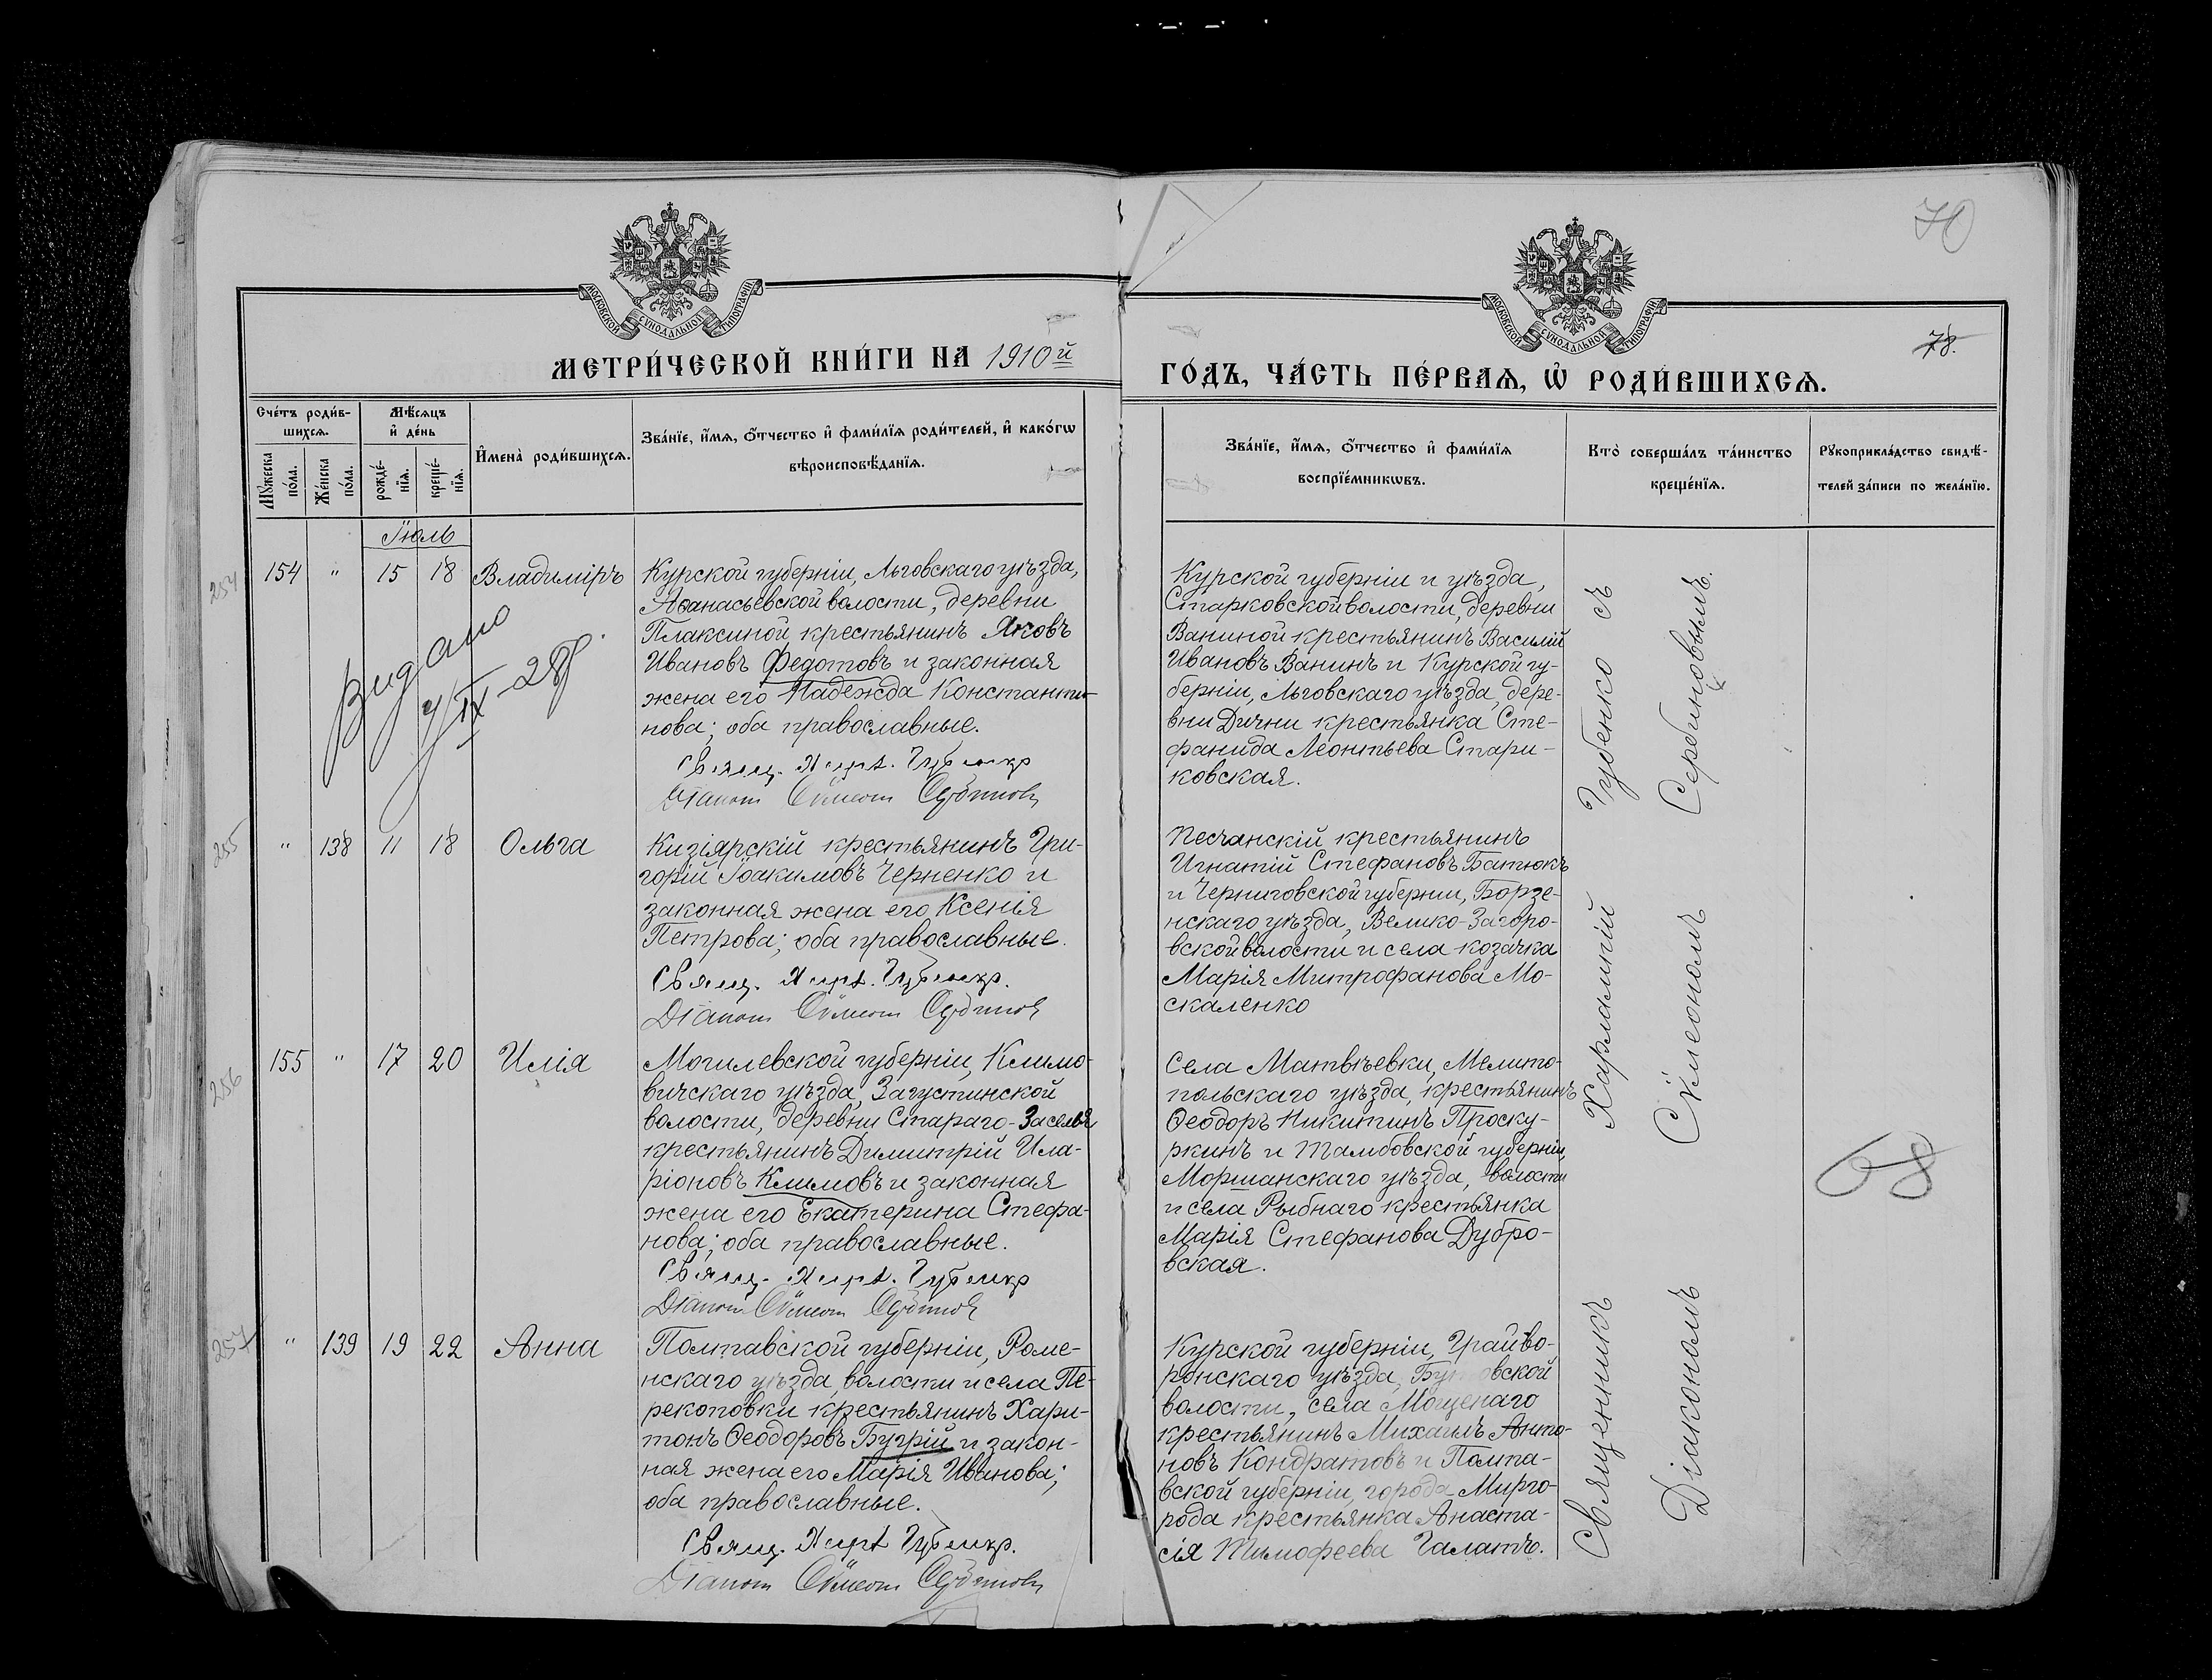 70
МОСКОВСКОЙ СѴНОДАЛЬНОЙ ТИПОГРАФІИ
МОСКОВСКОЙ СѴНОДАЛЬНОЙ ТИПОГРАФІИ
78.
МЕТРИ́ЧЕСКОЙ КНИ́ГИ НА 1910й
ГО́ДЪ, ЧА́СТЬ ПЕ́РВАѦ, Ѡ҆ РОДИ́ВШИХСѦ.
Сче́тъ роди́в-
шихсѧ.
Мꙋ́жеска
по́ла.
Же́нска
по́ла.
Мѣ́сѧцъ
и҆ де́нь
рожде́-
нїѧ.
креще́-
нїѧ.
И҆мена̀ роди́вшихсѧ.
Зва́нїе, и҆́мѧ, ѻ҆́тчество и҆ фами́лїѧ роди́телей, и҆ како́гѡ
вѣроисповѣ́данїѧ.
Зва́нїе, и҆́мѧ, ѻ҆́тчество и҆ фами́лїѧ
воспрїе́мникѡвъ.
Кто̀ соверша́лъ та́инство
креще́нїѧ.
Рꙋкоприкла́дство свидѣ́-
телей за́писи по жела́нїю.
Іюль
254
154 " 15 18 Владиміръ
Курской губерніи, Льговскаго уѣзда,
Аѳанасьевской волости, деревни
Плаксиной, крестьянинъ Яковъ
Ивановъ Федотовъ и законная
жена его Надежда Константи-
нова; оба православные.
Свящ. Харл. Губенко
Діакон Сѵмеон Сербинов
Видано
4/IX-28р.
Курской губерніи и уѣзда,
Старковской волости, деревни
Ваниной крестьянинъ Василій
Ивановъ Ванинъ и Курской гу-
берніи, Льговскаго уѣзда, дере-
вни Дични крестьянка Сте-
фанида Леонтьева Стари-
ковская.
255
" 138 11 18 Ольга
Кизіярскій крестьянинъ Гри-
горій Іоакимовъ Черненко и
законная жена его Ксенія
Петрова; оба православные.
Свящ. Харл. Губенко.
Діакон Сѵмеон Сербинов
Песчанскій крестьянинъ
Игнатій Стефановъ Батюкъ
и Черниговской губерніи, Борзе-
нскаго уѣзда, Велико-Загоро-
вской волости и села козачка
Марія Митрофанова Мо-
скаленко
256
155 " 17 20 Илія
Могилевской губерніи, Климо-
вичскаго уѣзда, Загустинской
волости, деревни Стараго-Заселья
крестьянинъ Димитрій Ила-
ріоновъ Климовъ и законная
жена его Екатерина Стефа-
нова; оба православные.
Свящ. Харл. Губенко
Діакон Сѵмеон Сербинов
Села Матвѣевки, Мелито-
польскаго уѣзда, крестьянинъ
Ѳеодоръ Никитинъ Проску-
ркинъ и Тамбовской губерніи,
Моршанскаго уѣзда, волости
и села Рыбнаго крестьянка
Марія Стефанова Дубро-
вская.
68
257
" 139 19 22 Анна
Полтавской губерніи, Роме-
нскаго уѣзда, волости и села Пе-
рекоповки крестьянинъ Хари-
тонъ Ѳеодоровъ Бугрій и закон-
ная жена его Марія Иванова;
оба православные.
Свящ. Харл Губенко.
Діакон Сѵмеон Сербинов
Курской губерніи, Грайво-
ронскаго уѣзда,
волости, села Мощенаго
крестьянинъ Михаилъ Анто-
новъ Кондратовъ и Полта-
вской губерніи, города Мирго-
рода крестьянка Анаста-
сія Тимофеева Галатъ.
Священникъ Харлампій Губенко съ
Діакономъ Сѵмеономъ Сербиновымъ.